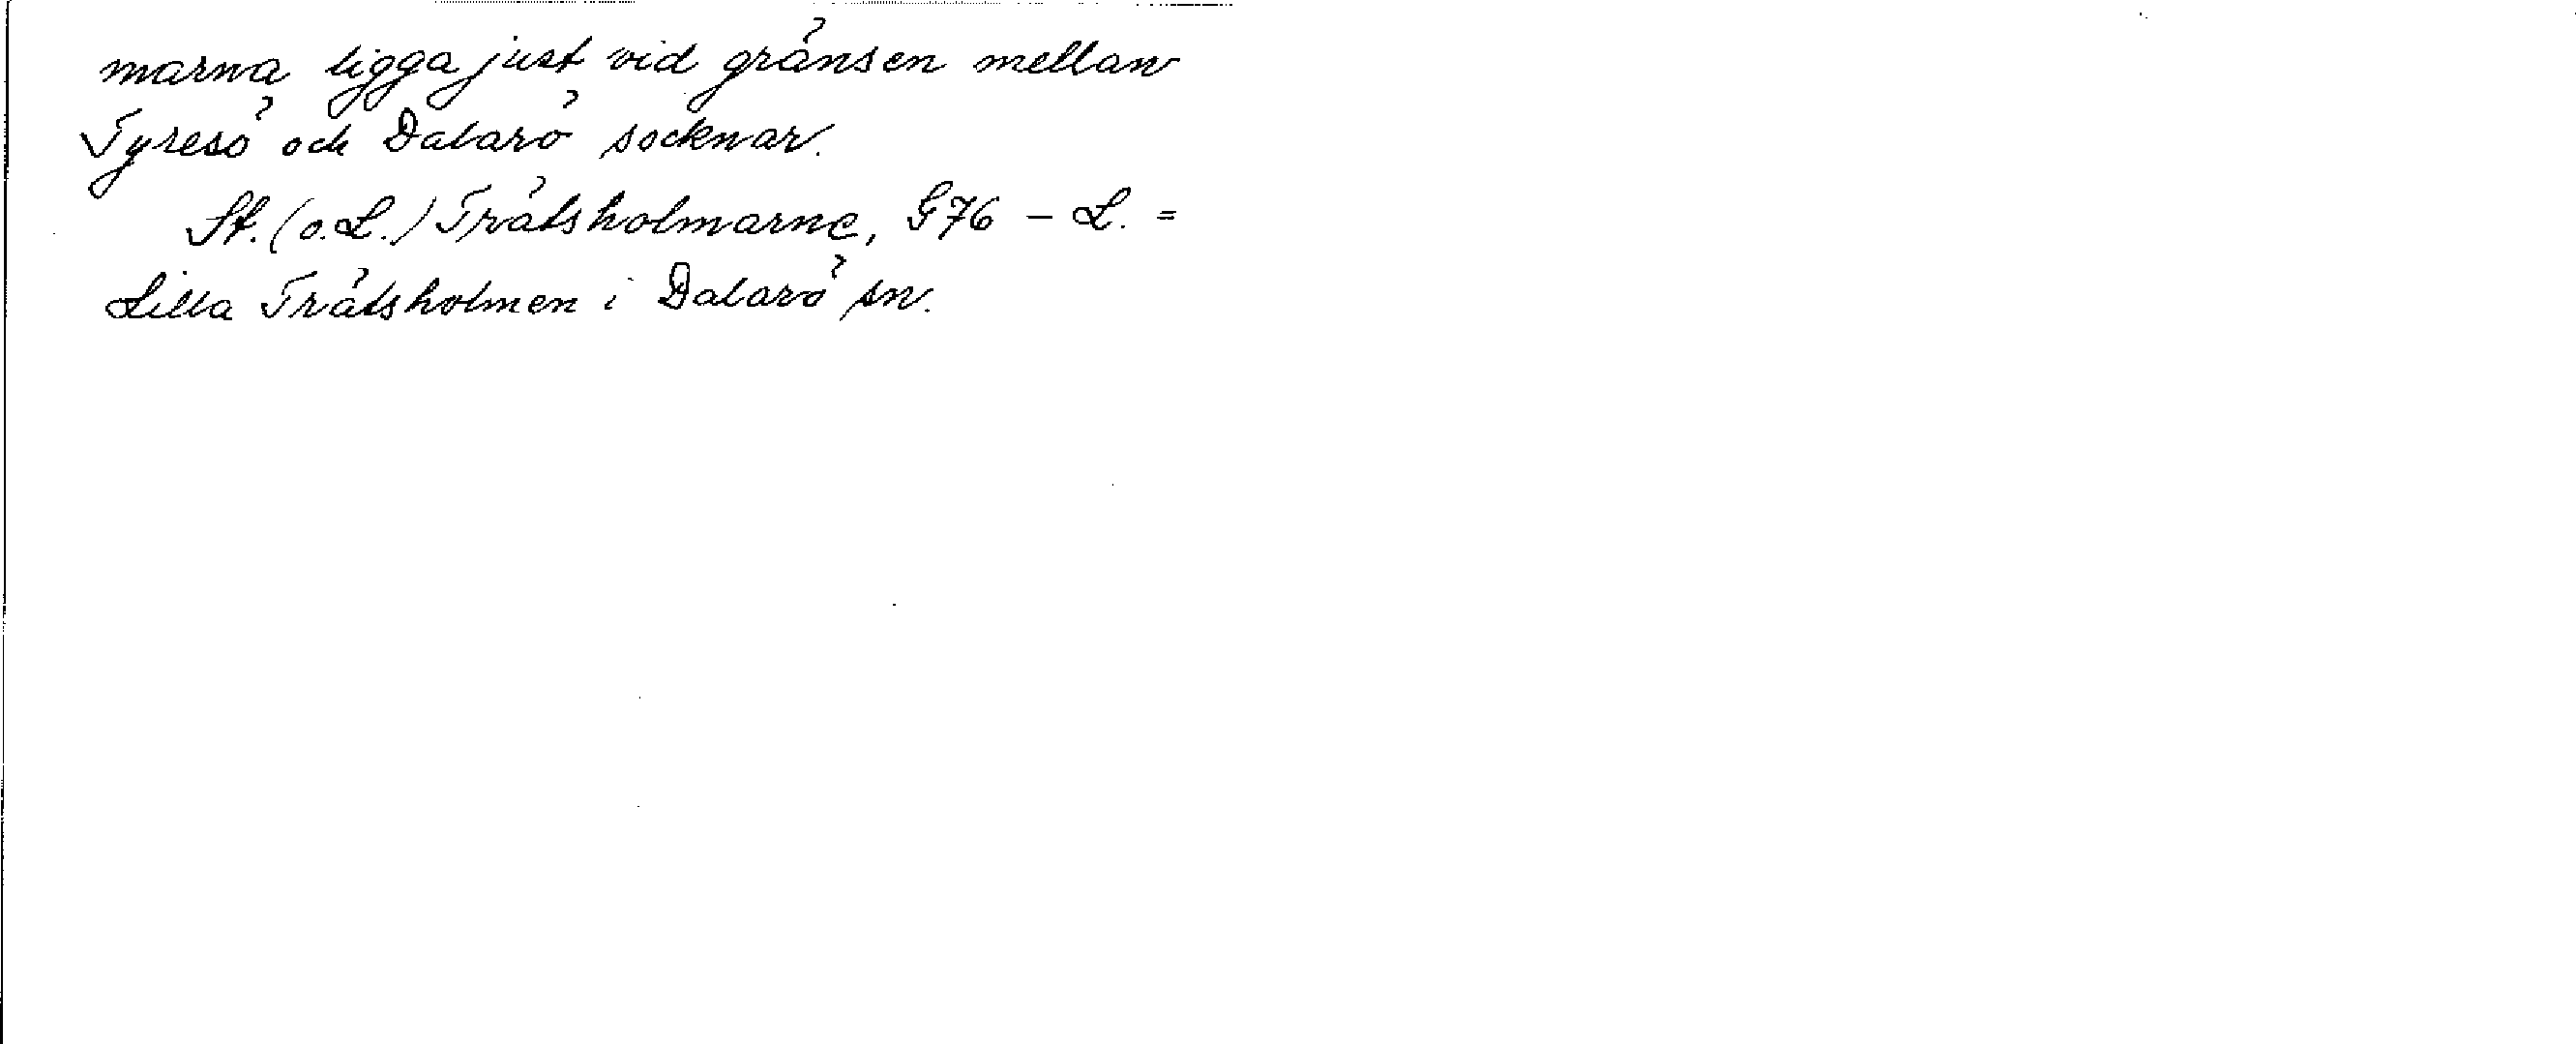 marna ligga just vid gränsen mellan
Tyresö och Dalarö socknar.
St. (o. L.) Trätsholmarne, G76 – L. =
Lilla Trätsholmen i Dalarö sn.